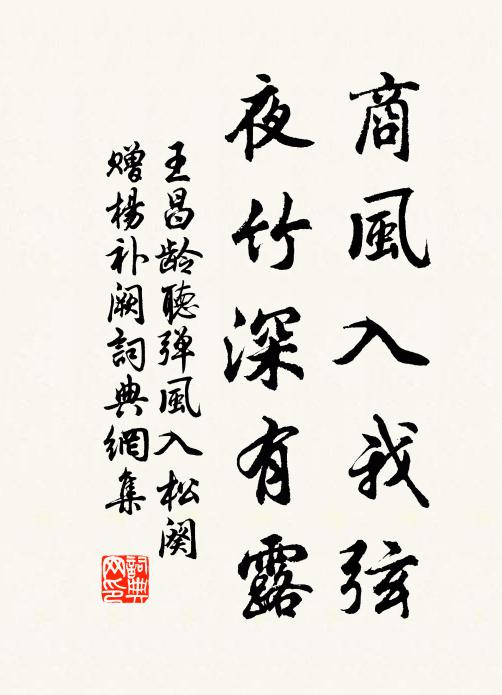 商風入我弦
夜竹深有露
王昌龄聽弹風入松闋
赠楊补闕詞典網集
詞典网印